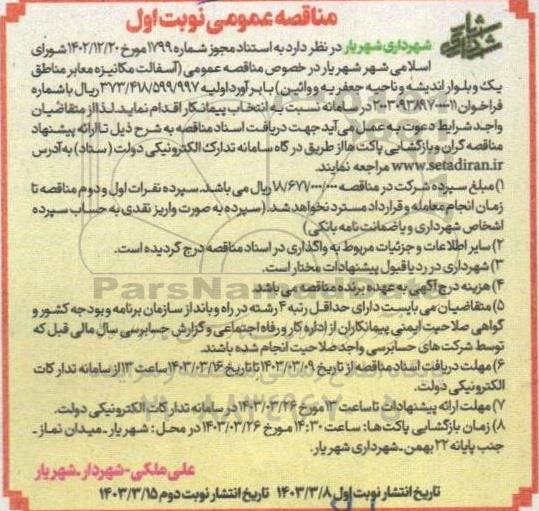 مناقصه عمومی نوبت اول
شهرداری شهریار در نظر دارد به استناد مجوز شماره ۱۷۹۹ مورخ ۱۴۰۲/۱۲/۲۰ شورای
اسلامی شهر شهریار در خصوص مناقصه عمومی (آسفالت مکانیزه معابر مناطق
یک و بلوار اندیشه و ناحیه جعفریه و وائین) با برآورد اولیه ۳۷۳/۴۱۸/۵۹۹/۹۹۷ ریال با شماره
فراخوان ۲۰۰۳۰۹۳۸۹۷۰۰۰۰۱۱ در سامانه نسبت به انتخاب پیمانکار اقدام نماید. لذا از متقاضیان
واجد شرایط دعوت به عمل می آید جهت دریافت اسناد مناقصه به شرح ذیل تا ارائه پیشنهاد
مناقصه گران و بازگشایی پاکت ها از طریق درگاه سامانه تدارک الکترونیکی دولت (ستاد) به آدرس
www.setadiran.ir مراجعه نمایند.
۱) مبلغ سپرده شرکت در مناقصه ۱۸/۶۷۷/۰۰۰/۰۰۰ ریال می باشد. سپرده نفرات اول و دوم مناقصه تا
زمان انجام معامله و قرارداد مسترد نخواهد شد. (سپرده به صورت واریز نقدی به حساب سپرده
اشخاص شهرداری و یا ضمانت نامه بانکی)
۲) سایر اطلاعات و جزئیات مربوط به واگذاری در اسناد مناقصه درج گردیده است.
۳) شهرداری در رد یا قبول پیشنهادات مختار است.
۴) هزینه درج آگهی به عهده برنده مناقصه می باشد
۵) متقاضیان می بایست دارای حداقل رتبه ۴ رشته در راه و باند از سازمان برنامه و بودجه کشور و
گواهی صلاحیت ایمنی پیمانکاران از اداره کار و رفاه اجتماعی و گزارش حسابرسی سال مالی قبل که
توسط شرکت های حسابرسی واجد صلاحیت انجام شده باشند.
۶) مهلت دریافت اسناد مناقصه از تاریخ ۱۴۰۳/۰۳/۰۹ تا تاریخ ۱۴۰۳/۰۳/۱۶ ساعت ۱۳ از سامانه تدارکات
الکترونیکی دولت.
۷) مهلت ارائه پیشنهادات تا ساعت ۱۳ مورخ ۱۴۰۳/۰۳/۲۶ در سامانه تدارکات الکترونیکی دولت.
۸) زمان بازگشایی پاکت ها: ساعت ۱۴:۳۰ مورخ ۱۴۰۳/۰۳/۲۶ در محل: شهریار ـ میدان نماز ـ
جنب پایانه ۲۲ بهمن ـ شهرداری شهریار.
علی ملکی - شهردار ـ شهریار
تاریخ انتشار نوبت اول ۱۴۰۳/۳/۸ تاریخ انتشار نوبت دوم ۱۴۰۳/۳/۱۵